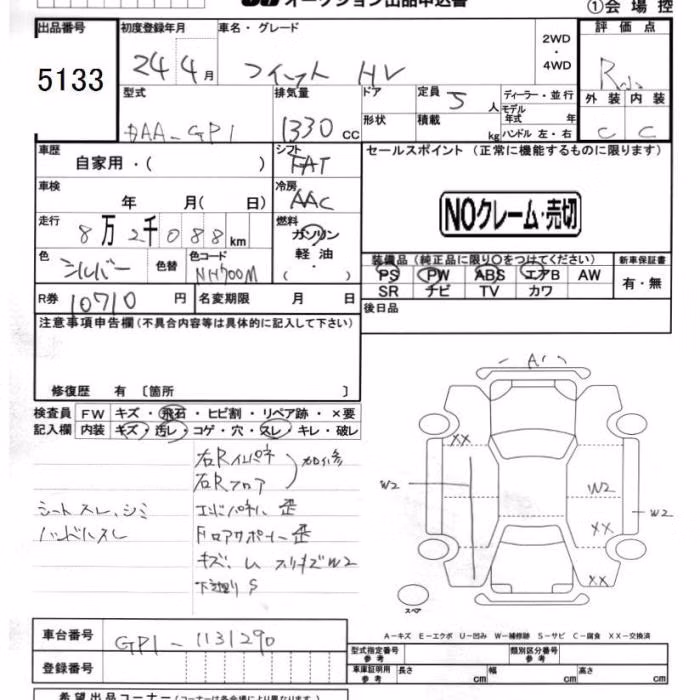 オークション出品申込書
①会場控
出品番号 初度登録年月 車名・グレード 2WD・4WD 評価点
5133 24年4月 フィット HV
外装 内装
C C
型式 排気量 ドア 定員 5人 ディーラー・並行
DAA-GP1 1330cc 形状 積載 kg モデル年式 年
ハンドル 左・右
車歴 自家用・( ) シフト FAT セールスポイント (正常に機能するものに限ります)
車検 年 月( 日) 冷房 AAC
NOクレーム・売切
走行 8万2千088km 燃料 ガソリン 軽油 ( ・ )
色 シルバー 色替 色コード NH700M
装備品 (純正品に限り〇をつけてください) 新車保証書
PS PW ABS エアB AW 有・無
SR ナビ TV カワ
R券 10710円 名変期限 月 日 後日品
注意事項申告欄 (不具合内容等は具体的に記入して下さい)
修復歴 有 〔箇所 〕
検査員 FW キズ・飛石・ヒビ割・リペア跡・×要
記入欄 内装 キズ・汚レ・コゲ・穴・スレ・キレ・破レ
右Rインパネ
右Rフロア
加修
シートスレ、シミ エンドパネル 歪
ハンドルスレ Fロアサポート 歪
キズ、ム スリキズW2
下廻りS
A
XX
W2 W2 W2
XX
XX
スペア
A-キズ E-エクボ U-凹み W-補修跡 S-サビ C-腐食 XX-交換済
車台番号 GP1-1131290 型式指定番号 参考 類別区分番号 参考
登録番号 車庫証明用 参考 長さ cm 幅 cm 高さ cm
希望出品コーナー (コーナーは各会場により異なります)